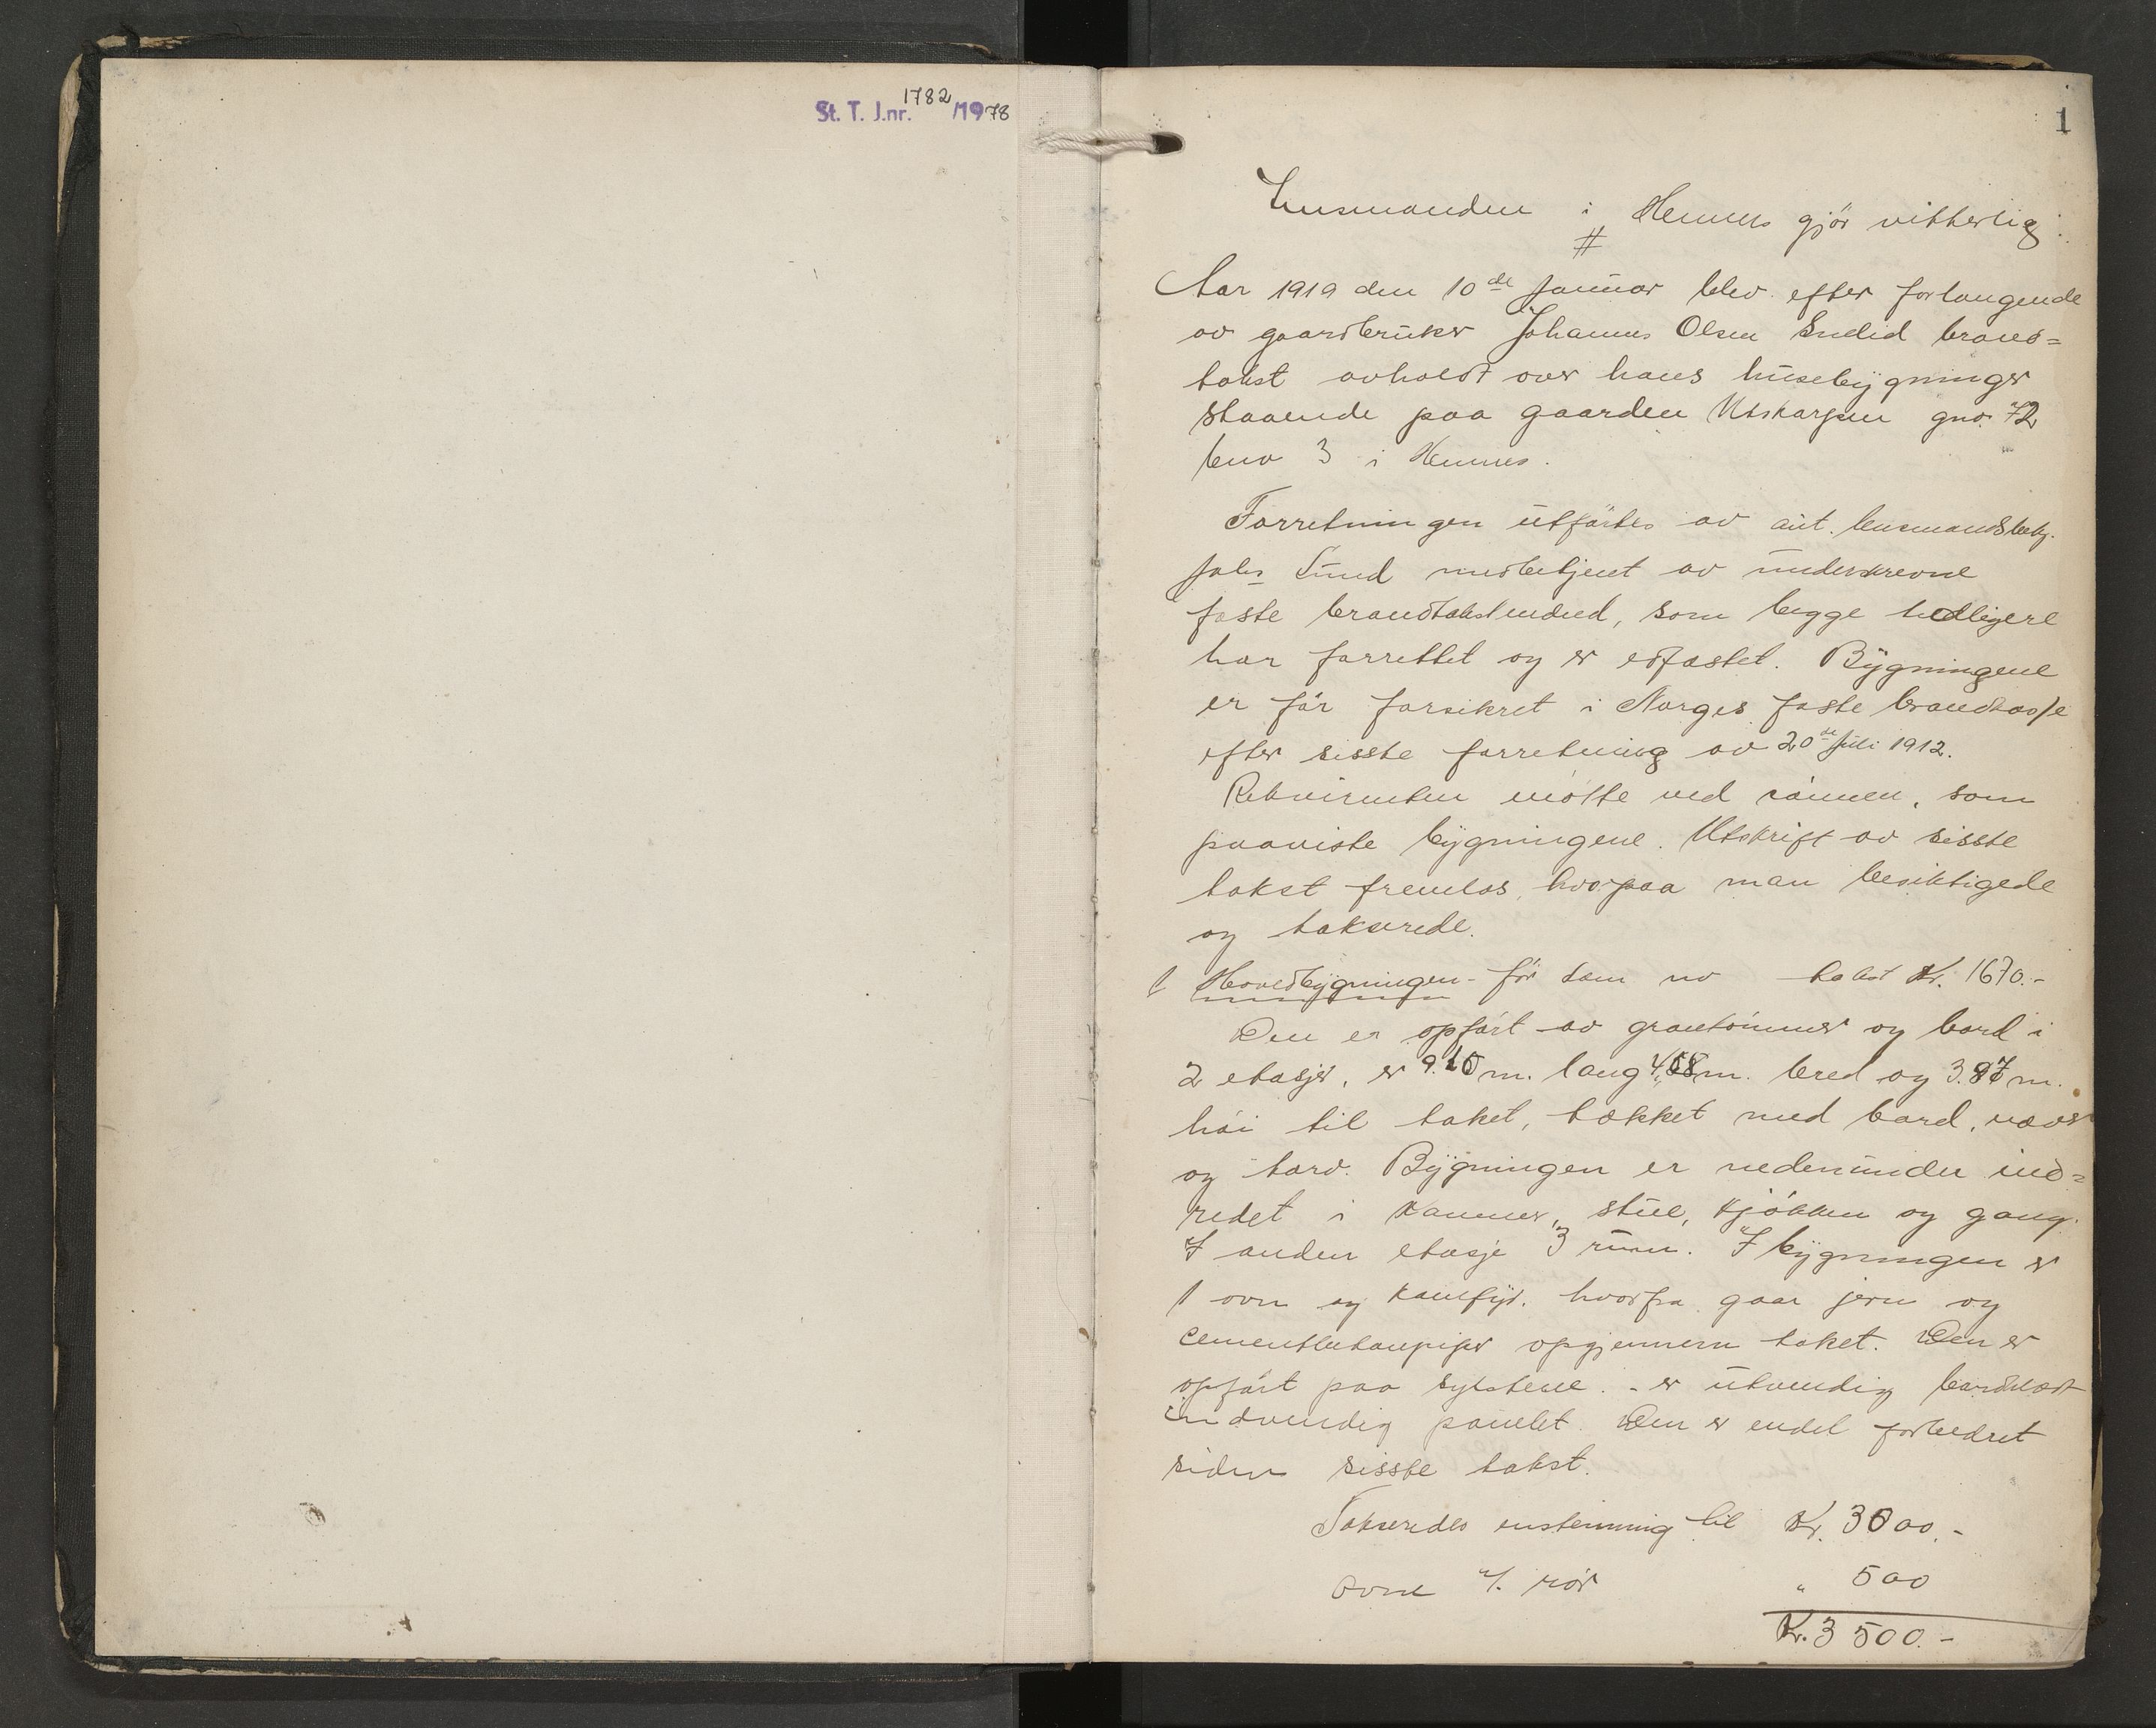 St. T. J.nr. 1782/1978
1
Lensmanden i Hemnes gjör vitterlig:
#
Aar 1919 den 10de Januar blev efter forlangende
av gaardbruker Johannes Olsen Snelid brand=
takst avholdt over hans husebygninger
staaende paa gaarden Utskarpen gno. 72
bno 3 i Hemnes.
Forretningen utförtes av aut. lensmandsbetj.
Johs Sund medbetjent av underskrevne
faste brandtakstmænd, som begge tidligere
har forrettet og er edfæstet. Bygningene
er för forsikret i Norges faste brandkasse
efter sisste forretning av 20de Juli 1912.
Rekvirenten mötte ved sönnen, som
paaviste bygningene. Utskrift av sisste
takst fremlas, hvorpaa man besiktigede
og takserede.
1 Hovedbygningen - för som no takst Kr. 1670.-
Den er opfört av grantömmer og bord i
2 etasjer, er 9.10 m. lang 4,68 m. bred og 3.87 m.
höi til taket, tækket med bord, næver
og torv. Bygningen er nedenunder ind=
redet i kammer, stue, kjökken og gang.
I anden etasje 3 rum. I bygningen er
1 ovn og komfyr. hvorfra gaar jern og
cementbetonpiper opgjennem taket. Den er
opfört paa sylstene. - er utvendig bordklædt
indvendig panelet. Den er endel forbedret
siden sisste takst.
Takseredes enstemmig til Kr. 3000.-
Ovne m/. rör " 500
Kr. 3 500.-